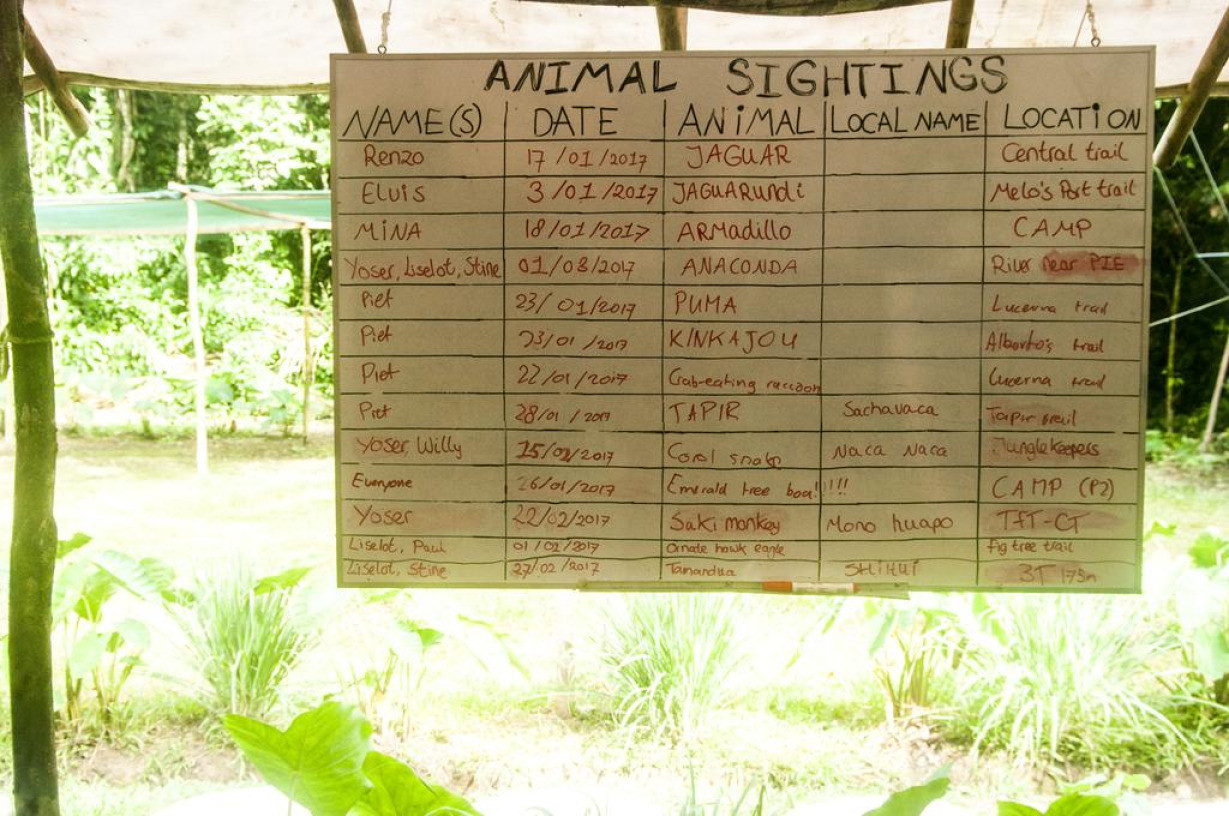 ANIMAL SIGHTINGS
NAME(S) DATE ANIMAL LOCAL NAME LOCATION
Renzo 17/01/2017 JAGUAR Central trail
ELVIS 3/01/2017 JAGUARUNDI Melo's Port trail
MINA 18/01/2017 ARMadillo CAMP
Yoser, Liselot, Stine 01/03/2017 ANACONDA River near
Piet 23/01/2017 PUMA Lucerna trail
Piet 23/01/2017 KINKAJOU Alberto's trail
Piet 22/01/2017 Crab-eating raccoon Lucerna trail
Piet 28/01/2017 TAPIR Sachavaca Tapir trail
Yoser, Willy 15/02/2017 Coral snake Naca Naca Junglekeepers
Everyone 26/01/2017 Emerald tree boa!!!!! CAMP (P2)
Yoser 22/02/2017 Saki monkey Mono huapo TFT-CT
Liselot, Paul 01/02/2017 Ornate hawk eagle fig tree trail
Liselot, Stine 27/02/2017 Tamandua SHIHUI 3T 175m